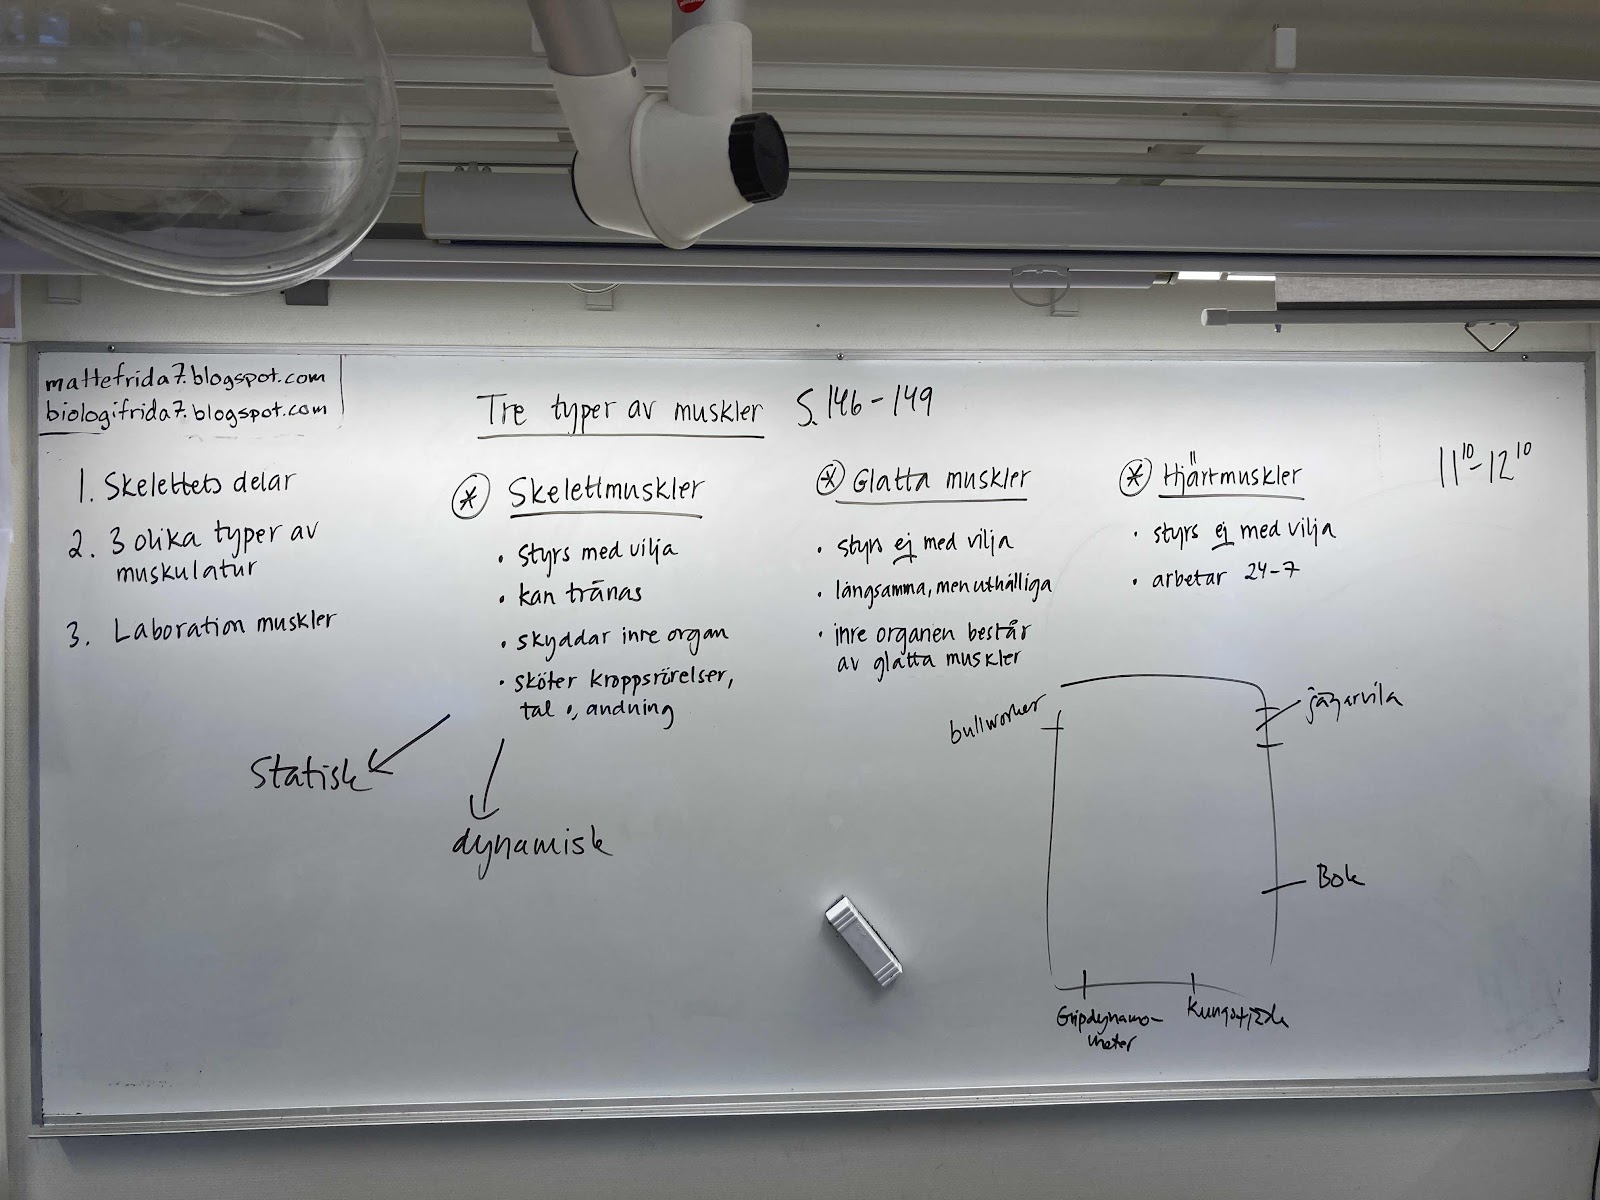 mattefrida7.blogspot.com
biologifrida7.blogspot.com
Tre typer av muskler S. 146-149
1. Skelettets delar
2. 3 olika typer av
muskulatur
3. Laboration muskler
* Skelettmuskler
• styrs med vilja
• kan tränas
• skyddar inre organ
• sköter kroppsrörelser,
tal, andning
Statisk
dynamisk
* Glatta muskler
• styrs ej med vilja
• långsamma, men uthålliga
• inre organen består
av glatta muskler
* Hjärtmuskler
• styrs ej med vilja
• arbetar 24-7
11¹⁰-12¹⁰
bullworker
jägarvila
Bok
Gripdynamo-
meter